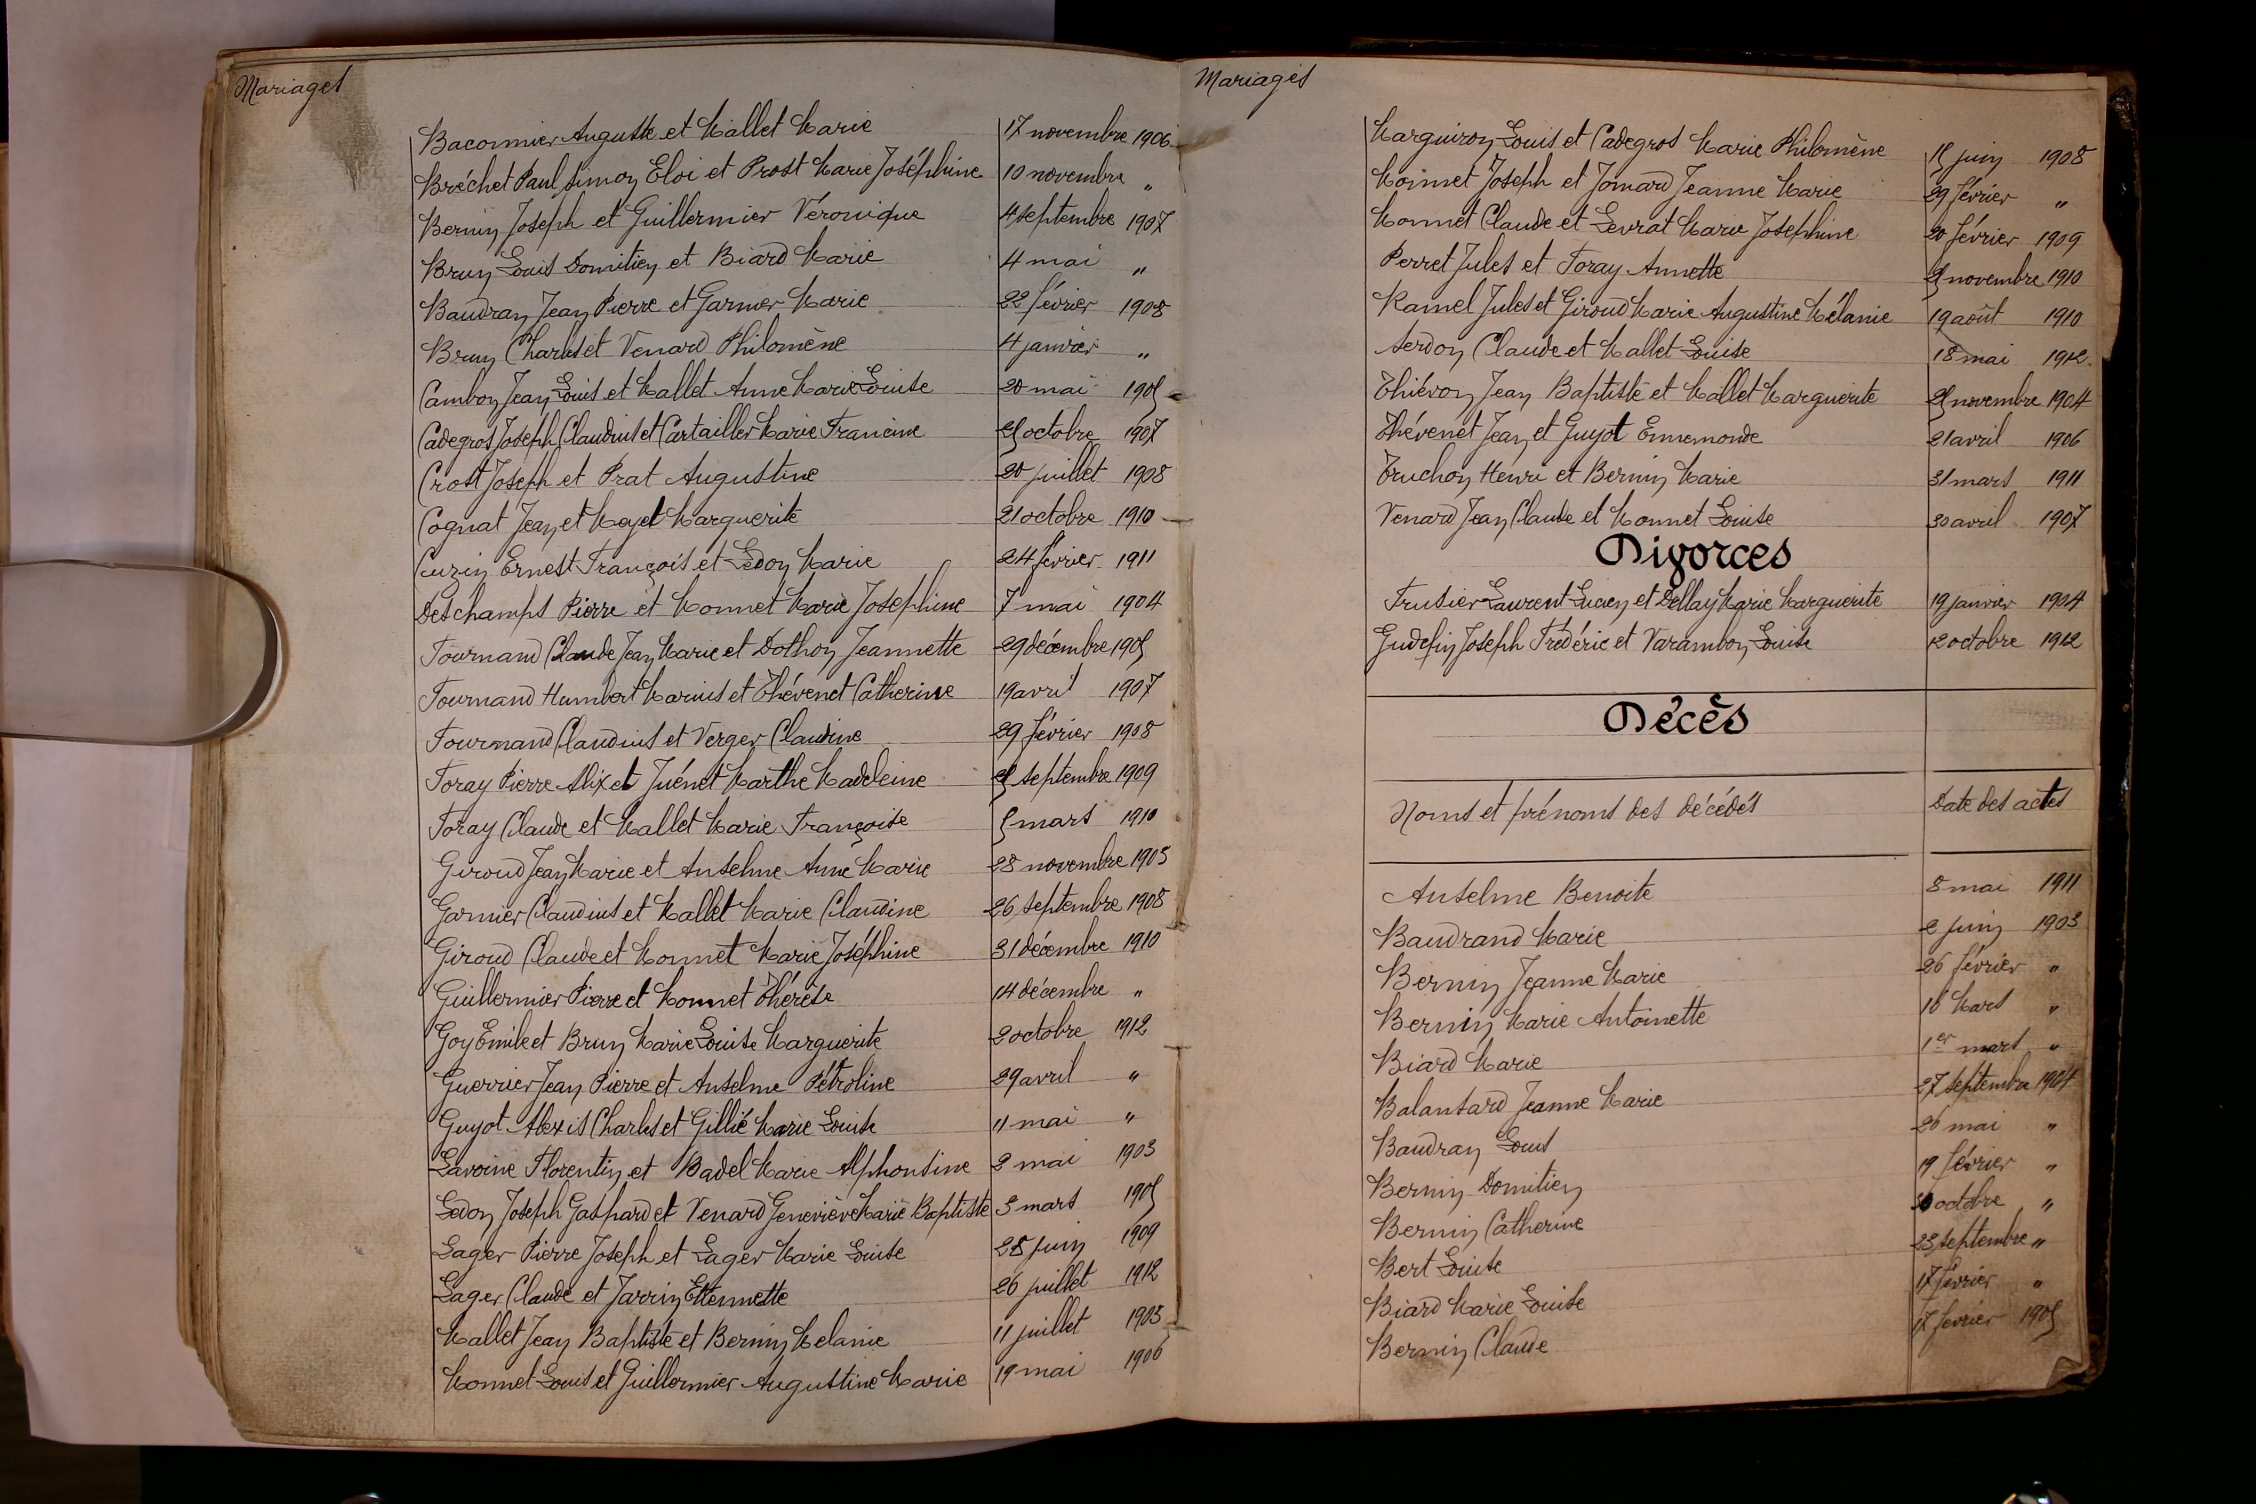 Mariages
Bacormier Auguste et Mallet Marie 17 novembre 1906
Bréchet Paul Simon Eloi et Prost Marie Joséphine 10 novembre "
Bernin Joseph et Guillermier Véronique 4 septembre 1907
Brun Louis Domitien et Biard Marie 4 mai "
Baudray Jean Pierre et Garnier Marie 22 février 1908
Brun Charles et Venard Philomène 4 janvier "
Cambon Jean Louis et Mallet Anne Marie Louise 20 mai 1905
Cadegros Joseph Claudius et Cartailler Marie Francine 25 octobre 1907
Crost Joseph et Prat Augustine 20 juillet 1908
Cognat Jean et Moyet Marguerite 21 octobre 1910
Cuzin Ernest François et Ledon Marie 24 février 1911
Deschamps Pierre et Monnet Marie Josephine 7 mai 1904
Fournand Claude Jean Marie et Dothon Jeannette 29 décembre 1905
Fournand Humbert Marius et Thévenet Catherine 19 avril 1907
Fournand Claudius et Verger Claudine 29 février 1908
Foray Pierre Alix et Juénet Marthe Madeleine 25 septembre 1909
Foray Claude et Mallet Marie Françoise 5 mars 1910
Giroud Jean Marie et Anselme Anne Marie 28 novembre 1903
Garnier Claudius et Mallet Marie Claudine 26 septembre 1908
Giroud Claude et Monnet Marie Joséphine 31 décembre 1910
Guillermier Pierre et Monnet Thérèse 14 décembre "
Goy Emile et Brun Marie Louise Marguerite 2 octobre 1912
Guerrier Jean Pierre et Anselme Pétroline 29 avril "
Guyot Alexis Charles et Gillié Marie Louise 11 mai "
Lavoine Florentin et Badel Marie Alphonsine 2 mai 1903
Ledon Joseph Gaspard et Venard Geneviève Marie Baptiste 3 mars 1905
Lager Pierre Joseph et Lager Marie Louise 28 juin 1909
Lager Claude et Jarrin Etiennette 26 juillet 1912
Mallet Jean Baptiste et Bernin Mélanie 11 juillet 1903
Monnet Louis et Guillermier Augustine Marie 19 mai 1906
Mariages
Marguiron Louis et Cadegros Marie Philomène 15 juin 1908
Moinnet Joseph et Jomard Jeanne Marie 29 février "
Monnet Claude et Levrat Marie Josephine 20 février 1909
Perret Jules et Foray Annette 25 novembre 1910
Ramel Jules et Giroud Marie Augustine Mélanie 19 août 1910
Serdon Claude et Mallet Louise 18 mai 1912
Thiévon Jean Baptiste et Mallet Marguerite 25 novembre 1904
Thévenet Jean et Guyot Ennemonde 21 avril 1906
Truchon Henri et Bernin Marie 31 mars 1911
Venard Jean Claude et Monnet Louise 30 avril 1907
Divorces
Frusier Laurent Lucien et Dellay Marie Marguerite 19 janvier 1904
Gudefin Joseph Frédéric et Varambon Louise 12 octobre 1912
Décès
Noms et prénoms des décédés Date des actes
Anselme Benoite 8 mai 1911
Baudrand Marie 2 juin 1903
Bernin Jeanne Marie 26 février "
Bernin Marie Antoinette 18 Mars "
Biard Marie 1er mars "
Balansard Jeanne Marie 27 septembre 1904
Baudray Louis 26 mai "
Bernin Domitien 19 février "
Bernin Catherine octobre "
Bert Louise 23 septembre "
Biard Marie Louise 17 février "
Bernin Claude 17 février 1905